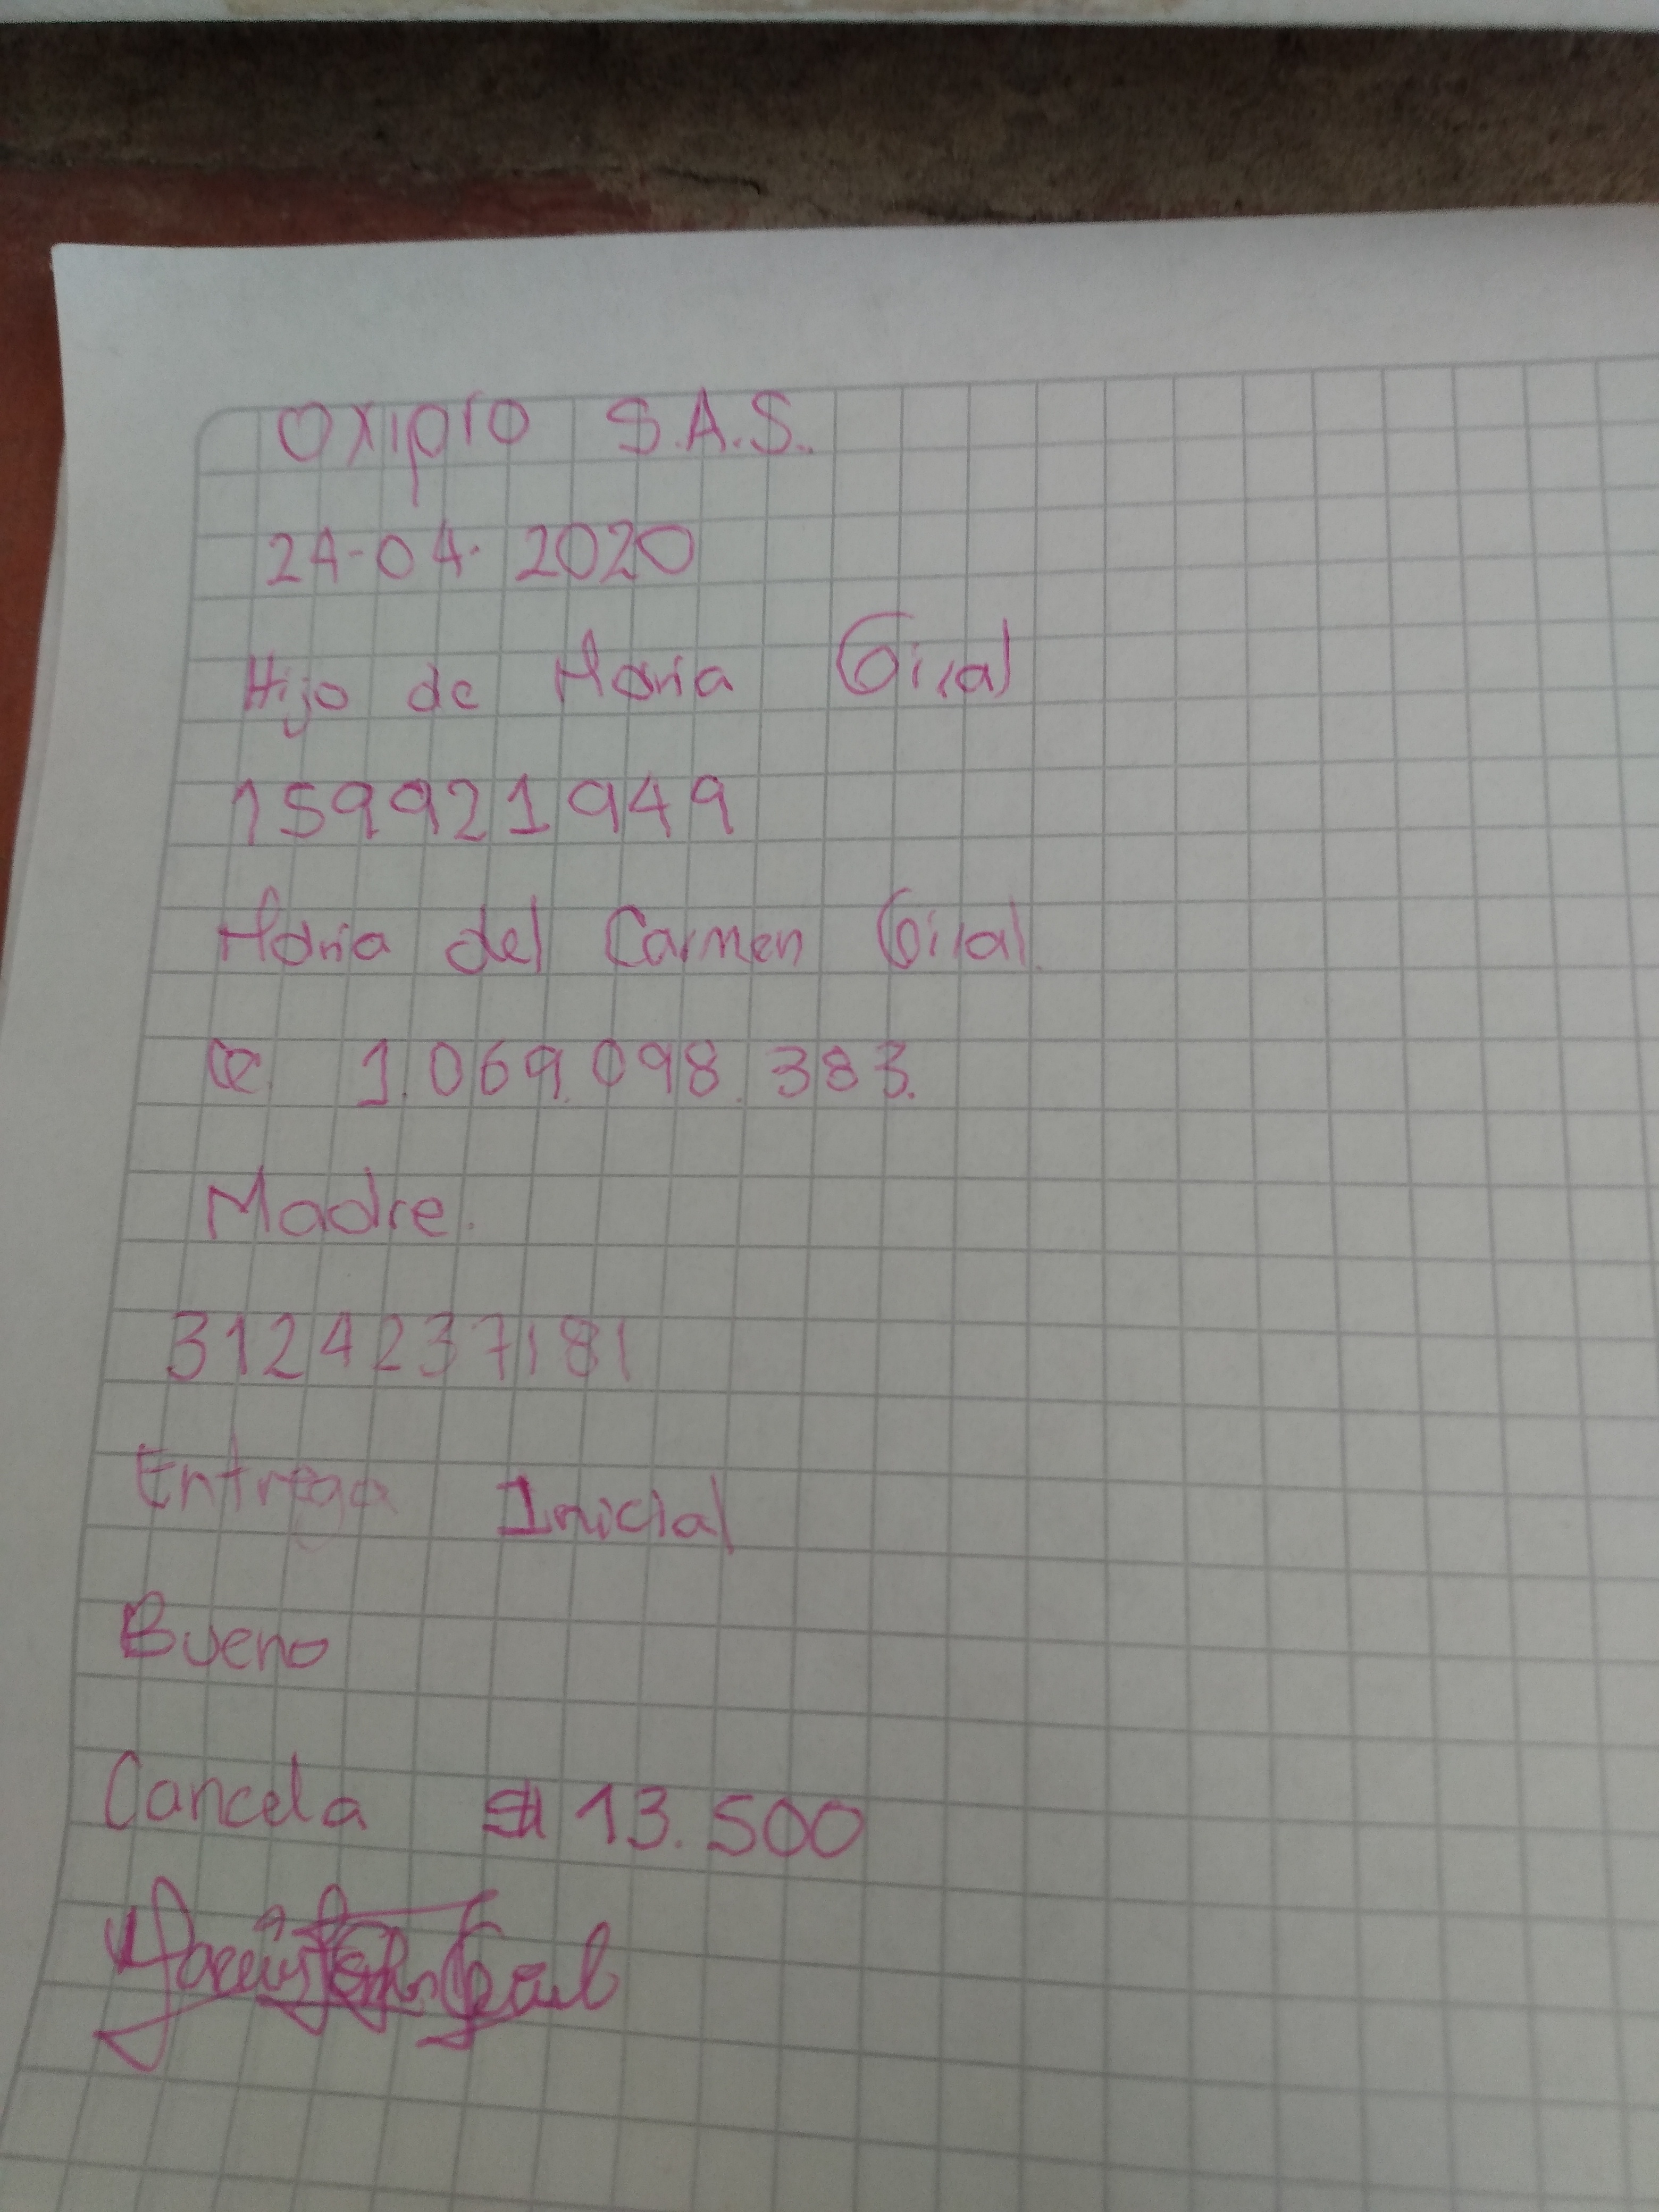 Oxipro S.A.S.
24-04-2020
Hijo de Maria Giral
159921949
Maria del Carmen Giral
CC 1.069.098.383.
Madre.
3124237181
Entrega Inicial
Bueno
Cancela $ 13.500